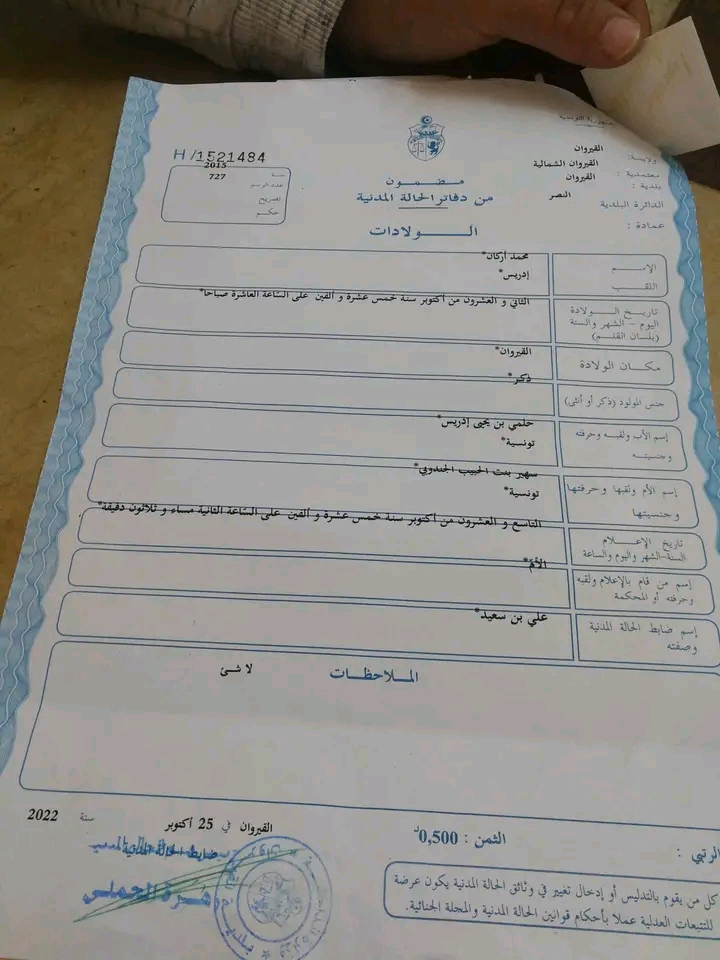 الجمهورية التونسية
ولاية: القيروان
معتمدية: القيروان الشمالية
بلدية: القيروان
الدائرة البلدية النصر
عمادة:
H/1521484
سنة 2015
عدد الرسم 727
تصريح
حكم
مضمون
من دفاتر الحالة المدنية
الـولادات
الإسم محمد أركان*
اللقب إدريس*
تاريخ الولادة الثاني و العشرون من أكتوبر سنة خمس عشرة و ألفين على الساعة العاشرة صباحا*
اليوم - الشهر والسنة
(بلسان القلم)
مكان الولادة القيروان*
جنس المولود (ذكر أو أنثى) ذكر*
إسم الأب ولقبه وحرفته حلمي بن يحيى إدريس*
وجنسيته تونسية*
إسم الأم ولقبها وحرفتها سهير بنت الحبيب الجندوبي*
وجنسيتها تونسية*
تاريخ الإعلام التاسع و العشرون من أكتوبر سنة خمس عشرة و ألفين على الساعة الثانية مساء و ثلاثون دقيقة*
السنة-الشهر واليوم والساعة
إسم من قام بالإعلام ولقبه الأم*
وحرفته أو المحكمة
إسم ضابط الحالة المدنية علي بن سعيد*
وصفته
الملاحظات
لا شئ
القيروان في 25 أكتوبر سنة 2022
ضابط الحالة المدنية
الثمن : 0,500د
الرتبي :
كل من يقوم بالتدليس أو إدخال تغيير في وثائق الحالة المدنية يكون عرضة
للتتبعات العدلية عملا بأحكام قوانين الحالة المدنية والمجلة الجنائية.